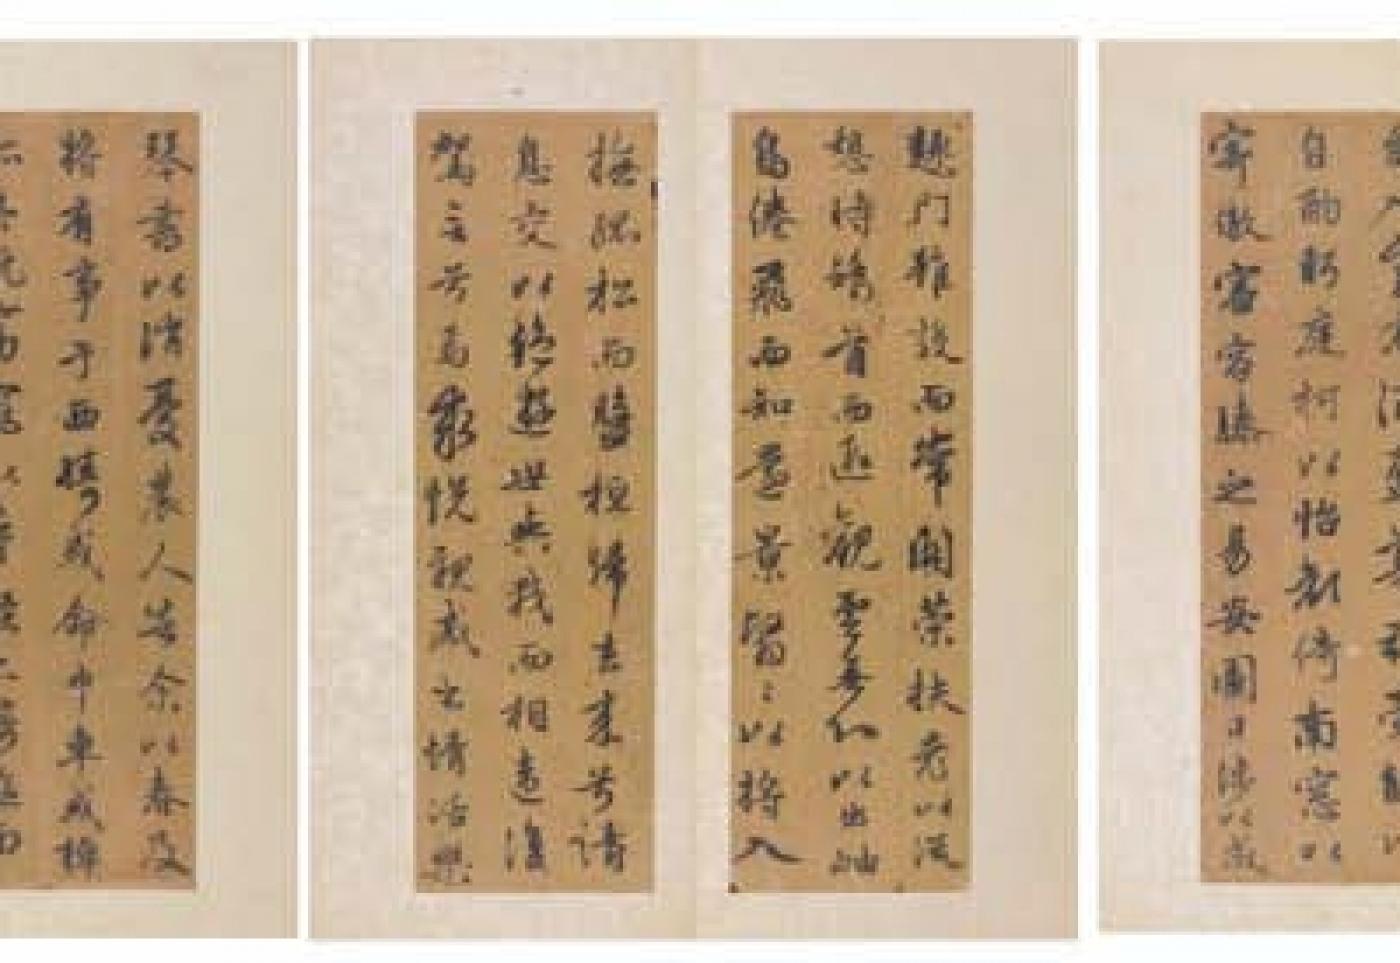 入室有酒盈
自酌眄庭柯以怡顏倚南窓以
寄傲審容膝之易安園日涉以成
趣門雖設而常關策扶老以流
憩時矯首而遐觀雲無心以出岫
鳥倦飛而知還景翳〻以將入
撫孤松而盤桓歸去來兮請
息交以絕遊世與我而相遺復
駕言兮焉求悅親戚之情話樂
琴書以消憂農人告余以春及
將有事于西疇或命巾車或棹